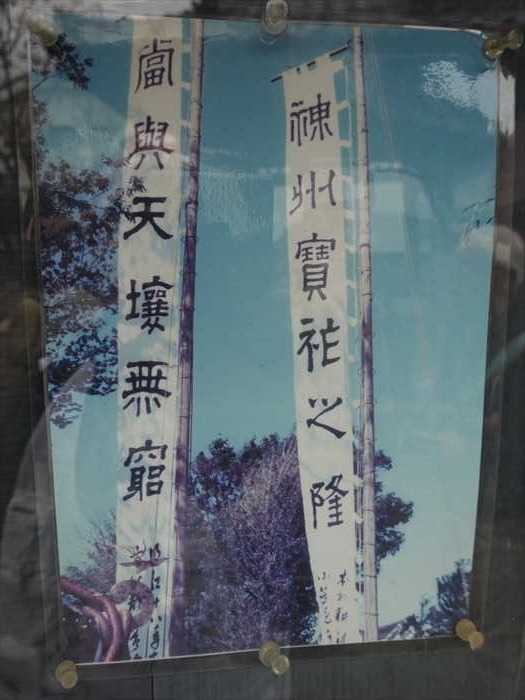 神州寶祚之隆
當與天壤無窮